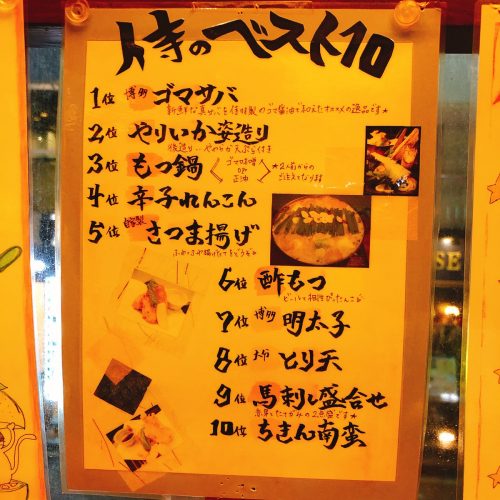 侍のベスト10
1位 博多 ゴマサバ
新鮮な真サバを侍特製のゴマ醤油で和えたオススメの逸品です★
2位 やりいか姿造り
後造り…やわらか天ぷら付き
3位 もつ鍋 〈ゴマ味噌 or 正油〉 ★2人前からのご注文になります
4位 辛子れんこん
5位 自家製 さつま揚げ
ふわふわ揚げたてをどうぞ
6位 酢もつ
ビールと相性がったんこ
7位 博多 明太子
8位 大分 とり天
9位 馬刺し盛合せ
赤身とたてがみの2色盛です★
10位 ちきん南蛮
SE